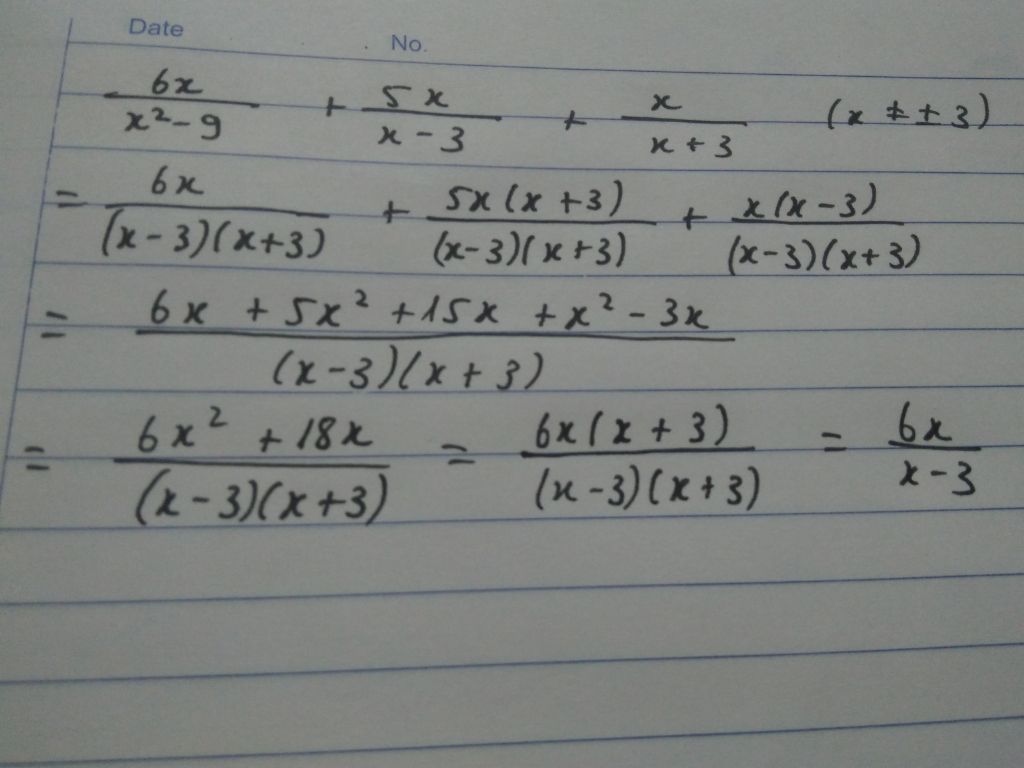 Date No.
6x/(x² - 9) + 5x/(x - 3) + x/(x + 3) (x ≠ ± 3)
= 6x/((x - 3)(x + 3)) + 5x(x + 3)/((x - 3)(x + 3)) + x(x - 3)/((x - 3)(x + 3))
= (6x + 5x² + 15x + x² - 3x)/((x - 3)(x + 3))
= (6x² + 18x)/((x - 3)(x + 3)) = 6x(x + 3)/((x - 3)(x + 3)) = 6x/(x - 3)